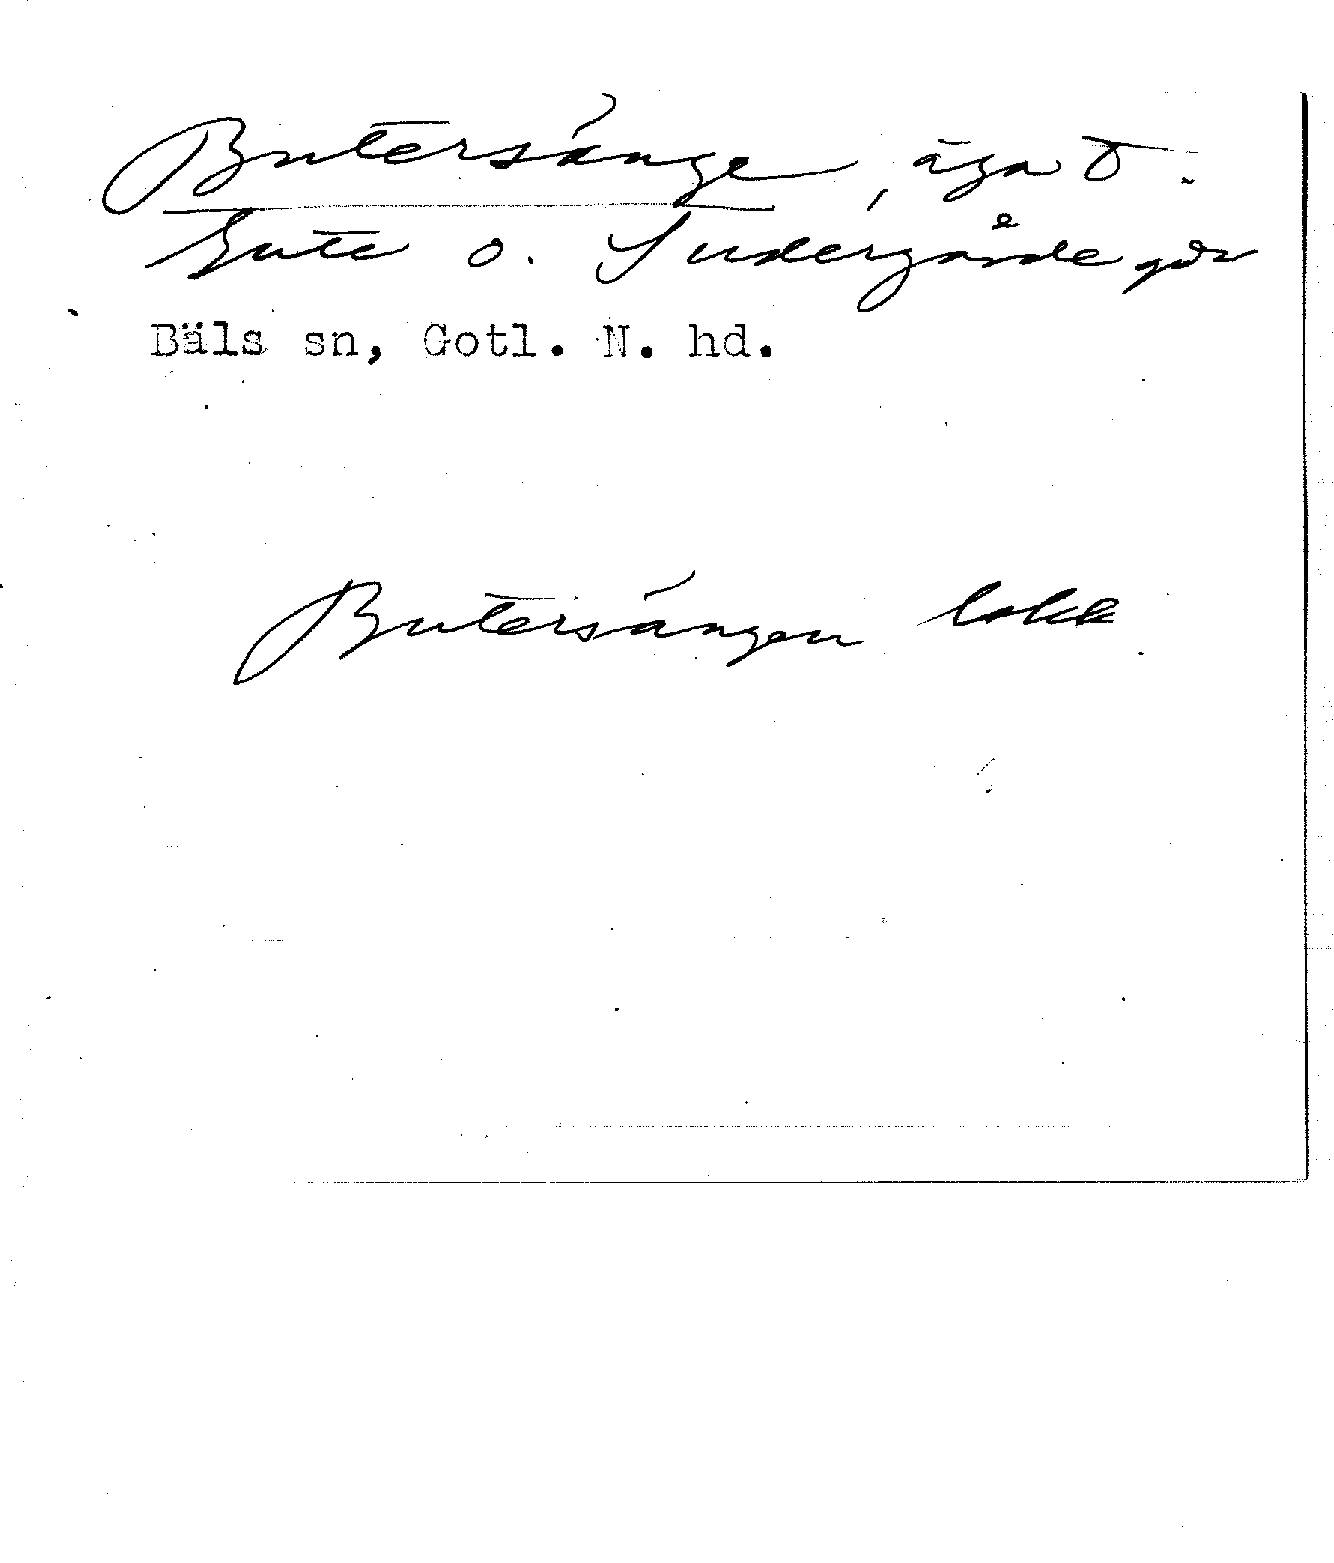 Butersänge, äga t.
Gute o. Sudergårde gdr
Bäls sn, Gotl. N. hd.
Butersängen